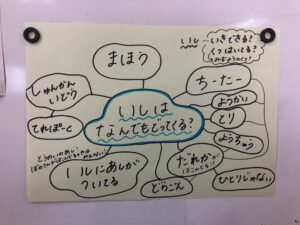 まほう
いし…いきてきる?
くつはいてる?
しゅんかん
いどう
ちーたー
てれぽーと
いしは
なんでもどってくる?
ようかい
とり
ようちゅう
とうめいのあし
いしにあしが
ついてる
どらごん
だれかが
はこんでる!!
ひとりじゃない